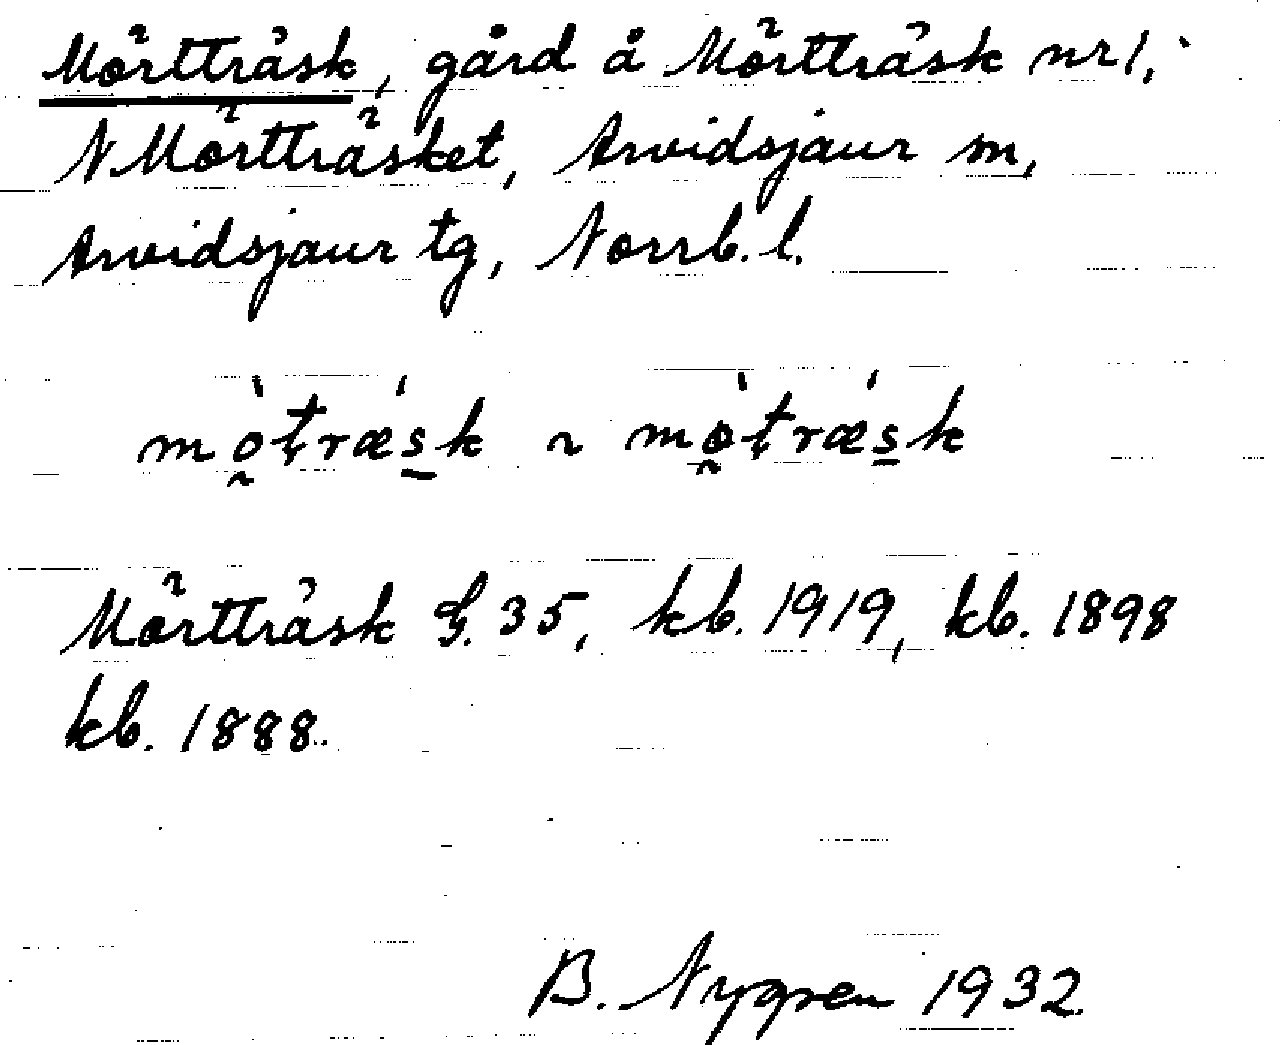 Mörtträsk, gård å Mörtträsk nr 1,
N Mörtträsket, Arvidsjaur sn,
Arvidsjaur tg, Norrb. l.
mò̰t̩ræ̀s̱k ~ mø̰̀t̩ræ̀s̱k
Mörtträsk G. 35, kb. 1919, kb. 1898
kb. 1888.
B. Nygren 1932